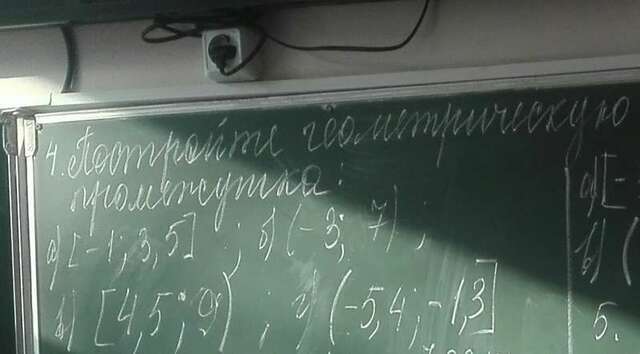 4. Постройте геометрическую
промежутка:
а) [-1; 3,5] ; б) (-3; 7) ;
в) [4,5; 9) ; г) (-5,4; -1,3]
а) [-
в) (
5.